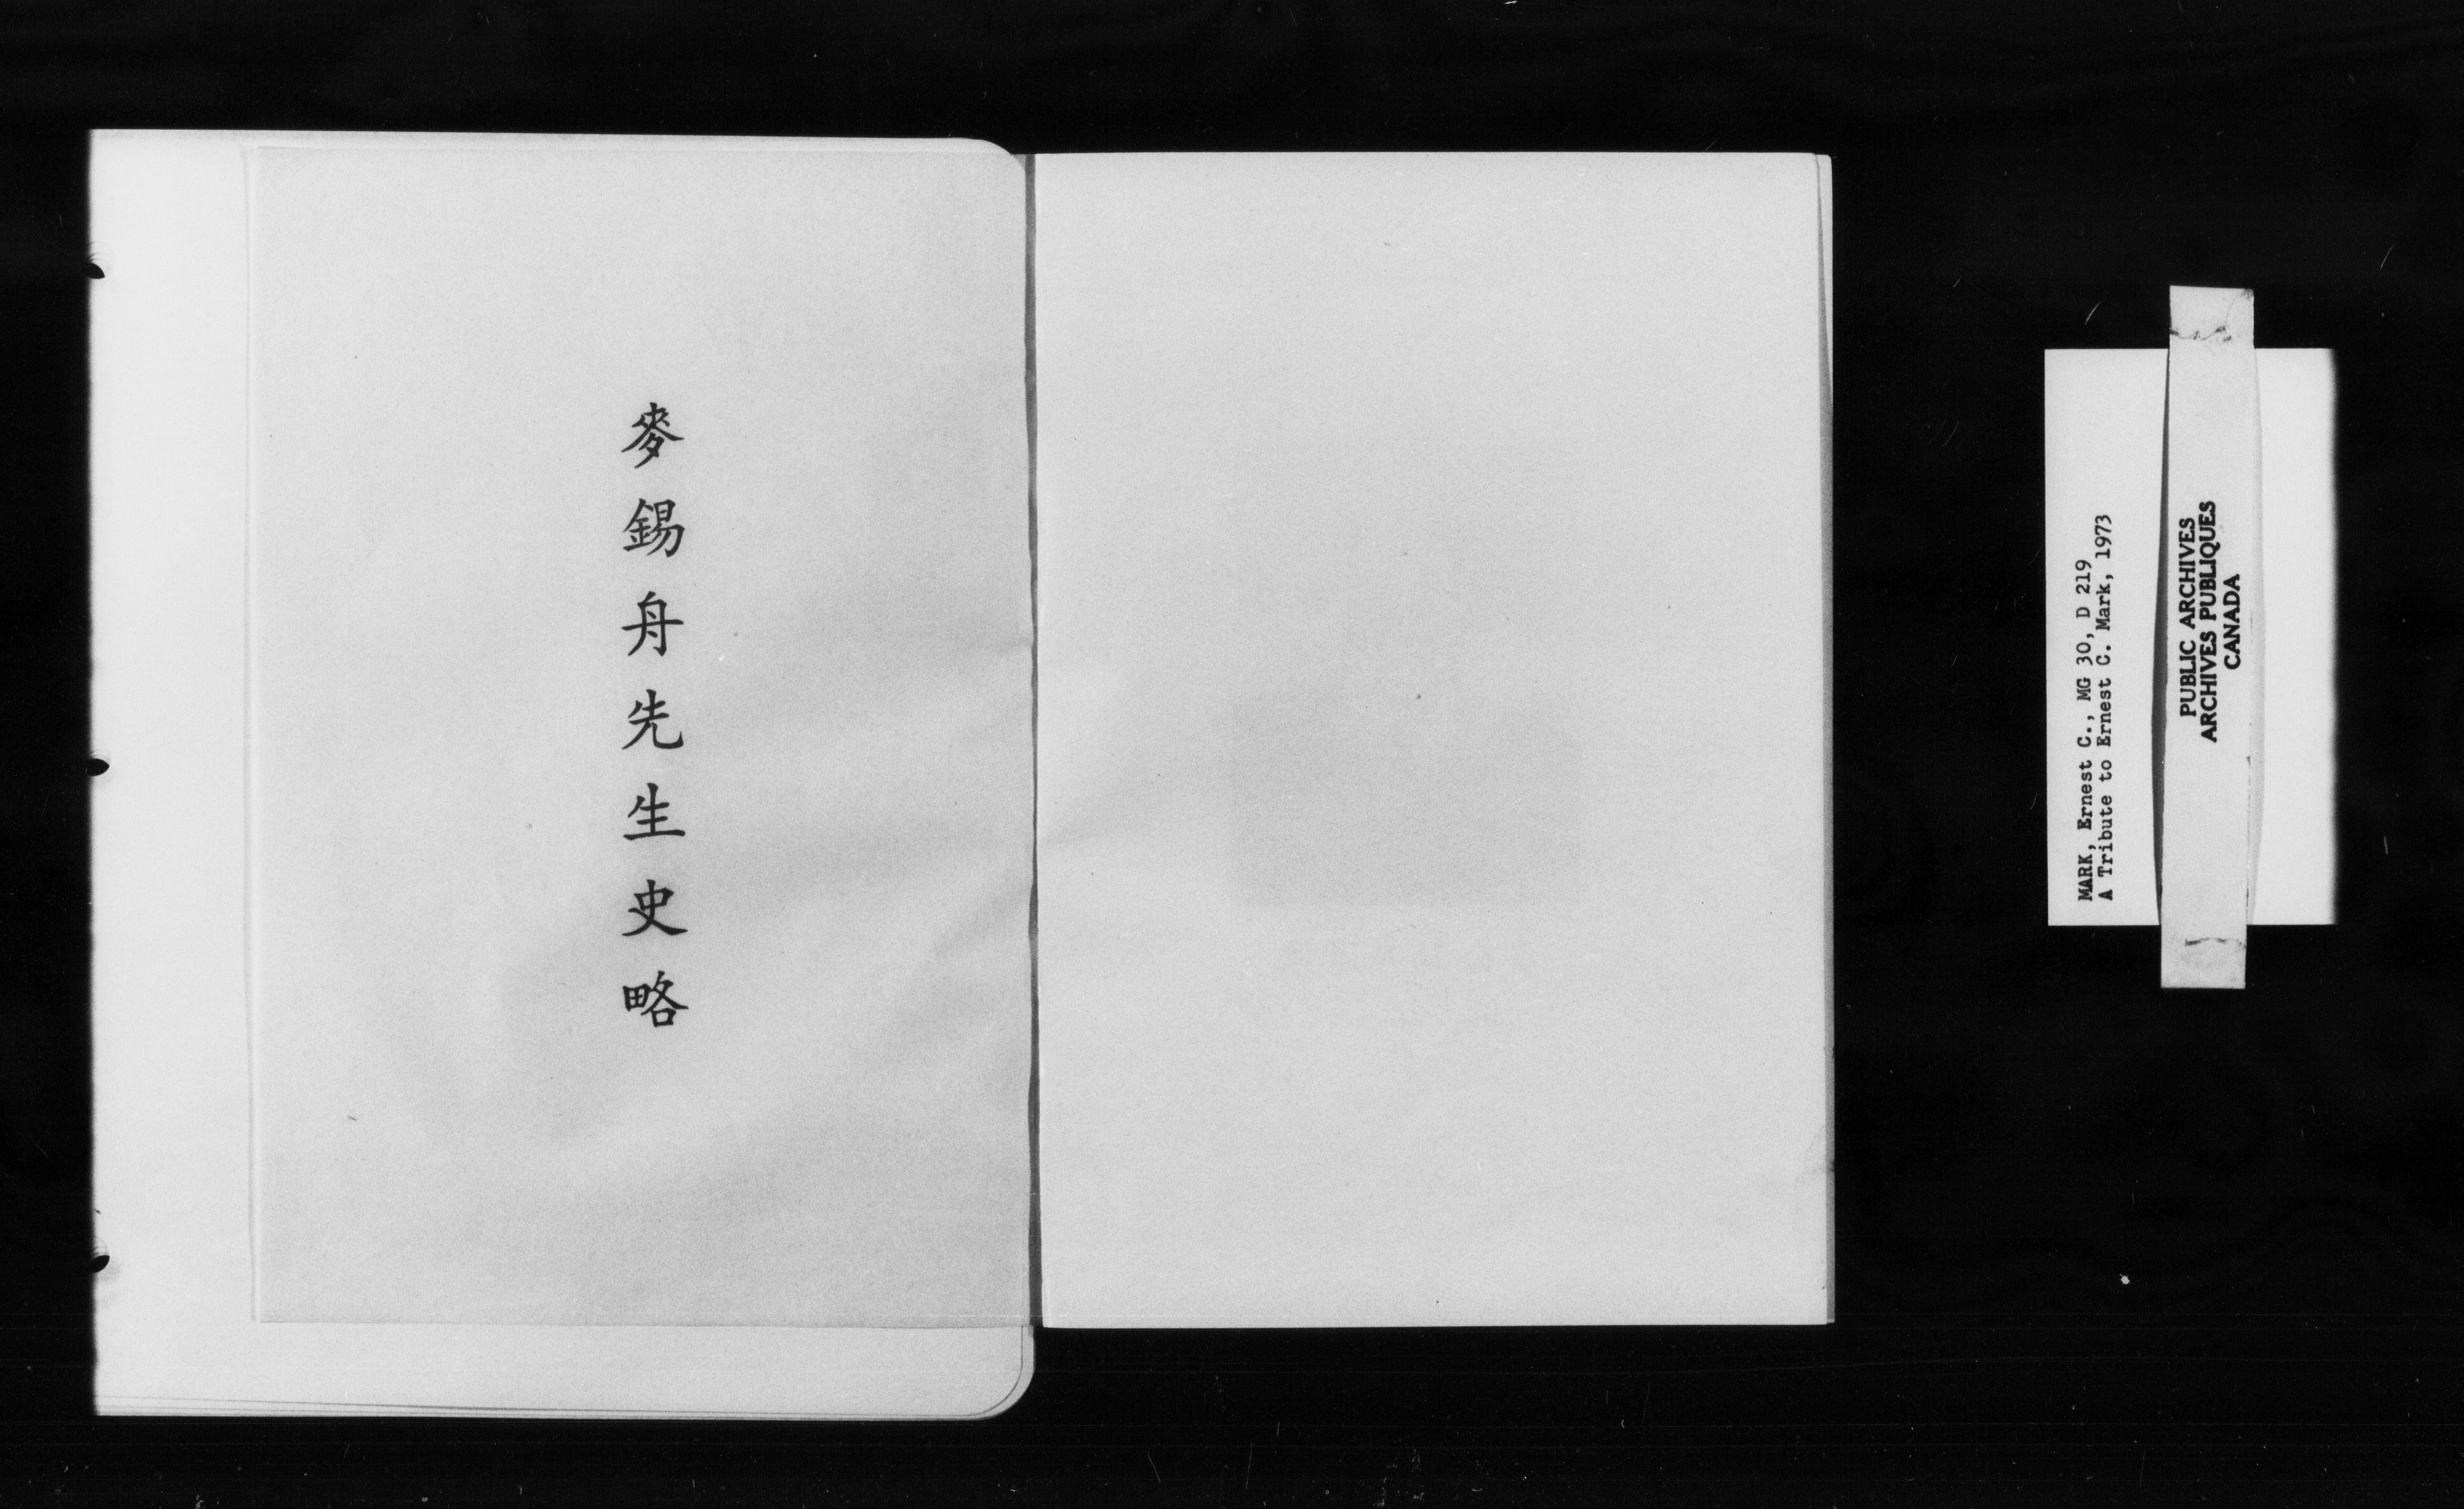 麥錫舟先生史略
MARK, Ernest C., MG 30, D 219
A Tribute to Ernest C. Mark, 1973
PUBLIC ARCHIVES
ARCHIVES PUBLIQUES
CANADA